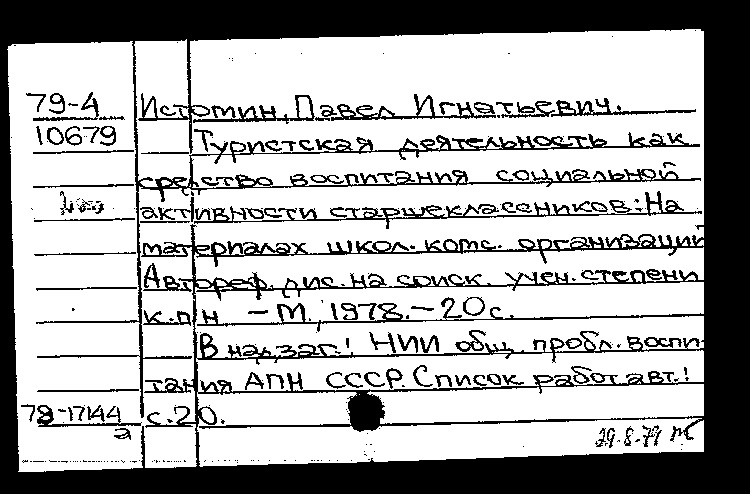 79-4 Истомин, Павел Игнатьевич.
10679 Туристская деятельность как
средство воспитания социальной
активности старшеклассников: На
материалах школ. комс. организаций
Автореф. дис. на соиск. учен. степени
к.п.н. — М., 1978. — 20 с.
В надзаг.: НИИ общ. пробл. воспи-
тания АПН СССР. Список работ авт.:
78-17144 с. 20.
а
29.8.79